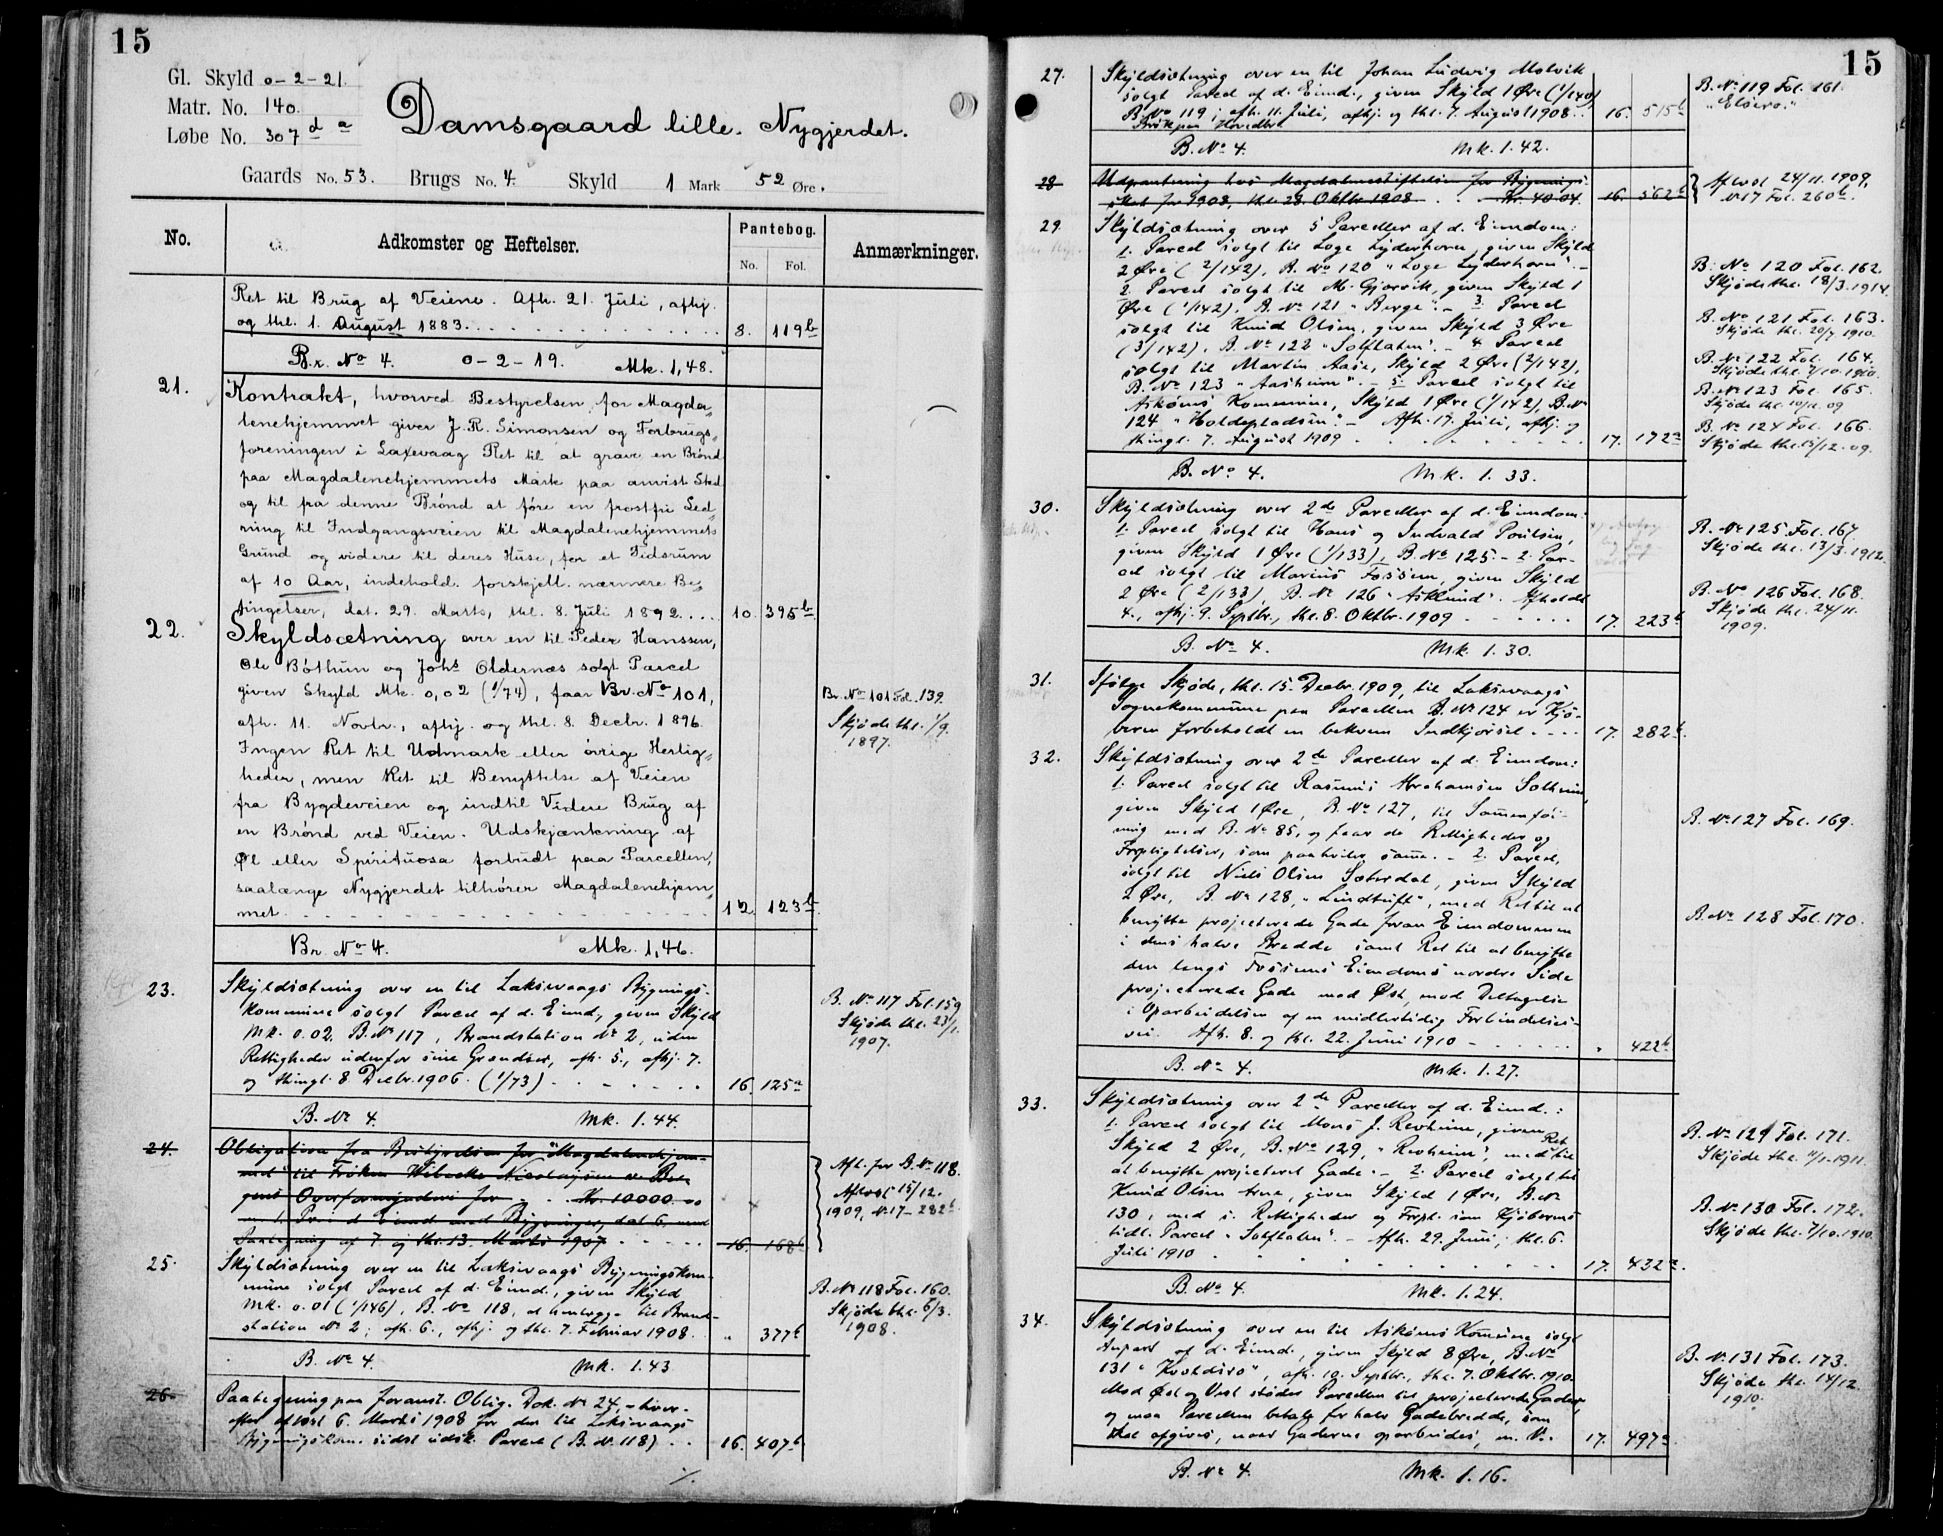 15
Gl. Skyld 0-2-21.
Matr. No. 140.
Løbe No. 307 d a
Damsgaard lille. Nygjerdet.
Gaards No. 53. Brugs No. 4. Skyld 1 Mark 52 Øre.
No. Adkomster og Heftelser. Pantebog. No. Fol. Anmærkninger.
Ret til Brug af Veiene. Afh. 21. Juli, afhj.
og thl. 1. August 1883. 8. 119b
Br. No 4. 0-2-19. Mk. 1,48.
21. Kontrakt, hvorved Bestyrelsen for Magda-
lenehjemmet giver J. R. Simonsen og Forbrugs-
foreningen i Laxevaag Ret til at grave en Brønd
paa Magdalenehjemmets Mark paa anvist Sted
og til fra denne Brønd at føre en frostfri Led-
ning til Indgangsveien til Magdalenehjemmets
Grund og videre til deres Huse, for et Tidsrum
af 10 Aar, indehold. forskjell. nærmere Be-
tingelser, dat. 29. Marts, thl. 8. Juli 1892 10. 395b
22. Skyldsætning over en til Peder Hanssen,
Ole Bøthun og Johs Oldernæs solgt Parcel
given Skyld Mk. 0,02 (1/74), faar Br. No 101, Br. No 101 Fol. 139.
afh. 11. Novbr., afhj. og thl. 8. Decbr. 1896. Skjøde thl. 1/9.
Ingen Ret til Udmark eller øvrige Herlig- 1897.
heder, men Ret til Benyttelse af Veien
fra Bygdeveien og indtil Videre Brug af
en Brønd ved Veien. Udskjænkning af
Øl eller Spirituosa forbudt paa Parcellen,
saalænge Nygjerdet tilhører Magdalenehjem
met 12. 123b
Br. No 4. Mk. 1,46.
23. Skyldsætning over en til Laksevaags Bygnings-
kommune solgt Parcel af d. Eiend., given Skyld B. No 117 Fol. 159
Mk. 0.02. B. No 117, Brandstation No 2, uden Skjøde thl. 23/1.
Rettigheder udenfor sine Grændser, afh. 5., afhj. 7. 1907.
og thingl. 8. Decbr. 1906. (1/73) 16. 125a
B. No 4. Mk. 1.44.
24. Obligation fra Bestyrelsen for "Magdalenehjem-
met" til Frøken Wibecke Nicolaysen ve Ber- Afl. for B. No 118.
gens Overformynderi for Kr. 10000.00 Aflæst 15/12.
m. 1. Pri. i d. Eiend. med Bygninger, dat. 6. med 1909, No 17-282b.
Paategning af 7. og thl. 13. Marts 1907 16. 168b
25. Skyldsætning over en til Laksevaags Bygningskom-
mune solgt Parcel af d. Eiend., given Skyld B. No 118 Fol. 160.
Mk. 0.01 (1/146), B. No 118, at henlægge til Brand- Skjøde thl. 6/3.
station No 2; afh. 6., afhj. og thl. 7. Februar 1908. " 377b 1908.
B. No 4. Mk. 1.43
26. Paategning paa foranst. Oblig. Dok. No 24, hver-
efter aflæst 6. Marts 1908 for den til Laksevaags
Bygningskom. sidst udsk. Parcel (B. No 118) 16. 407b
15
27. Skyldsætning over en til Johan Ludvig Molvik
solgt Parcel af d. Eiend., given Skyld 1 Øre (1/143) B. No 119 Fol. 161.
B. No 119; afh. 11. Juli, afhj. og thl. 7. August 1908. 16. 515b "Elsero."
B. No 4. Mk. 1.42.
28 Udpantning hos Magdalenestiftelsen for Bygnings-
skat for 1908, thl. 28. Oktbr. 1908 Kr. 40.04. 16. 562b Aflæst 24/11. 1909, No 17 Fol. 260b.
29. Skyldsætning over 5 Parceller af d. Eiendom:
1. Parcel solgt til Loge Lyderhorn, given Skyld
2 Øre (2/142), B. No 120 "Loge Lyderhorn". - B. No 120 Fol. 162.
2. Parcel solgt til M. Gjørvik, given Skyld 1 Skjøde thl. 18/3. 1914.
Øre (1/142), B. No 121 "Berge". - 3. Parcel B. No 121 Fol. 163.
solgt til Knud Olsen, given Skyld 3 Øre Skjøde thl. 20/7 1910.
(3/142), B. No 122 "Solhallen". - 4. Parcel B. No 122 Fol. 164.
solgt til Martin Aase, Skyld 2 Øre (2/142), Skjøde thl. 7/10. 1910.
B. No 123 "Aasheim". - 5. Parcel solgt til B. No 123 Fol. 165.
Askøens Kommune, Skyld 1 Øre (1/142), B. No Skjøde thl. 10/12. 09
124 "Holdepladsen". - Afh. 17. Juli, afhj. og B. No 124 Fol. 166.
thingl. 7. August 1909 17. 172a Skjøde thl. 15/12. 09.
B. No 4. Mk. 1. 33.
30. Skyldsætning over 2de Parceller af d. Eiendom:
1. Parcel solgt til Hans og Indvald Poulsen, B. No 125 Fol. 167.
given Skyld 1 Øre (1/133), B. No 125 - 2. Par- Skjøde thl. 13/3. 1912.
cel solgt til Marius Fossum, given Skyld
2 Øre (2/133), B. No 126 "Asklund". Afholdt B. No 126 Fol. 168.
4., afhj. 9. Septbr., thl. 8. Oktbr. 1909 17. 223b Skjøde thl. 24/11. 1909.
B. No 4. Mk. 1. 30.
31. Ifølge Skjøde, thl. 15. Decbr. 1909, til Laksevaags
Sognekommune paa Parcellen B. No 124 er Kjø-
beren forbeholdt en bekvem Indkjørsel 17. 282b.
32. Skyldsætning over 2de Parceller af d. Eiendom:
1. Parcel solgt til Rasmus Abrahamsen Solheim
given Skyld 1 Øre, B. No 127, til Sammenføi-
ning med B. No 85, og faar de Rettigheder og B. No 127 Fol. 169.
Forpligtelser, som paahviler samme. - 2. Parcel,
solgt til Niels Olsen Sæterdal, given Skyld
2 Øre, B. No 128, "Lindtuft", med Ret til at
benytte projecterede Gade foran Eiendommen B. No 128 Fol. 170.
i dens halve Bredde samt Ret til at benytte
den langs Fossums Eiendoms nordre Side
projecterede Gade mod Øst, mod Deltagelse
i Oparbeidelsen af en midlertidig Forbindelses-
vei. Afh. 8. og thl. 22. Juni 1910 " 422b
B. No 4. Mk. 1.27.
33. Skyldsætning over 2de Parceller af d. Eiend.:
1. Parcel solgt til Mons J. Revheim, given B. No 129 Fol. 171.
Skyld 2 Øre, B. No 129, "Revheim", med Ret til Skjøde thl. 11/1. 1911.
at benytte projecteret Gade. - 2. Parcel solgt til
Knud Olsen Aene, given Skyld 1 Øre, B. No
130, med s. Rettigheder og Forpl. som Kjøberens B. No 130 Fol. 172.
tidl. Parcel "Solhallen". - Afh. 29. Juni, thl. 6. Skjøde thl. 7/10. 1910.
Juli 1910 17. 432a.
B. No 4. Mk. 1.24.
34. Skyldsætning over en til Askøens Kommune solgt
Anpart af d. Eiend., given Skyld 8 Øre, B. No B. No 131 Fol. 173.
131 , afh. 10. Septbr., thl. 7. Oktbr. 1910. Skjøde thl. 14/12. 1910.
Mod Øst og Vest støder Parcellen til projecterede Gader,
og maa Parcellen betale for halv Gadebredde, som
skal afgives, naar Gaderne oparbeides, m. V. 17. 497a
B. No 4. Mk. 1.16.